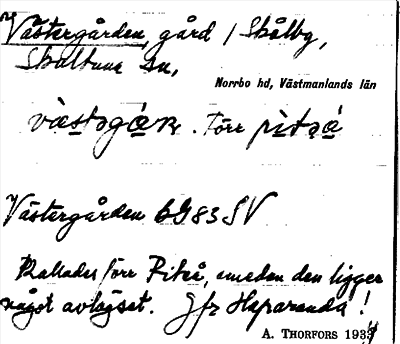 Västergården, gård i Skålby,
Skultuna sn,
Norrbo hd, Västmanlands län
Förr
Västergården 6G83 SV
Kallades förr Piteå, emedan den ligger
något avlägset. Jfr Haparanda!
A. THORFORS 1933